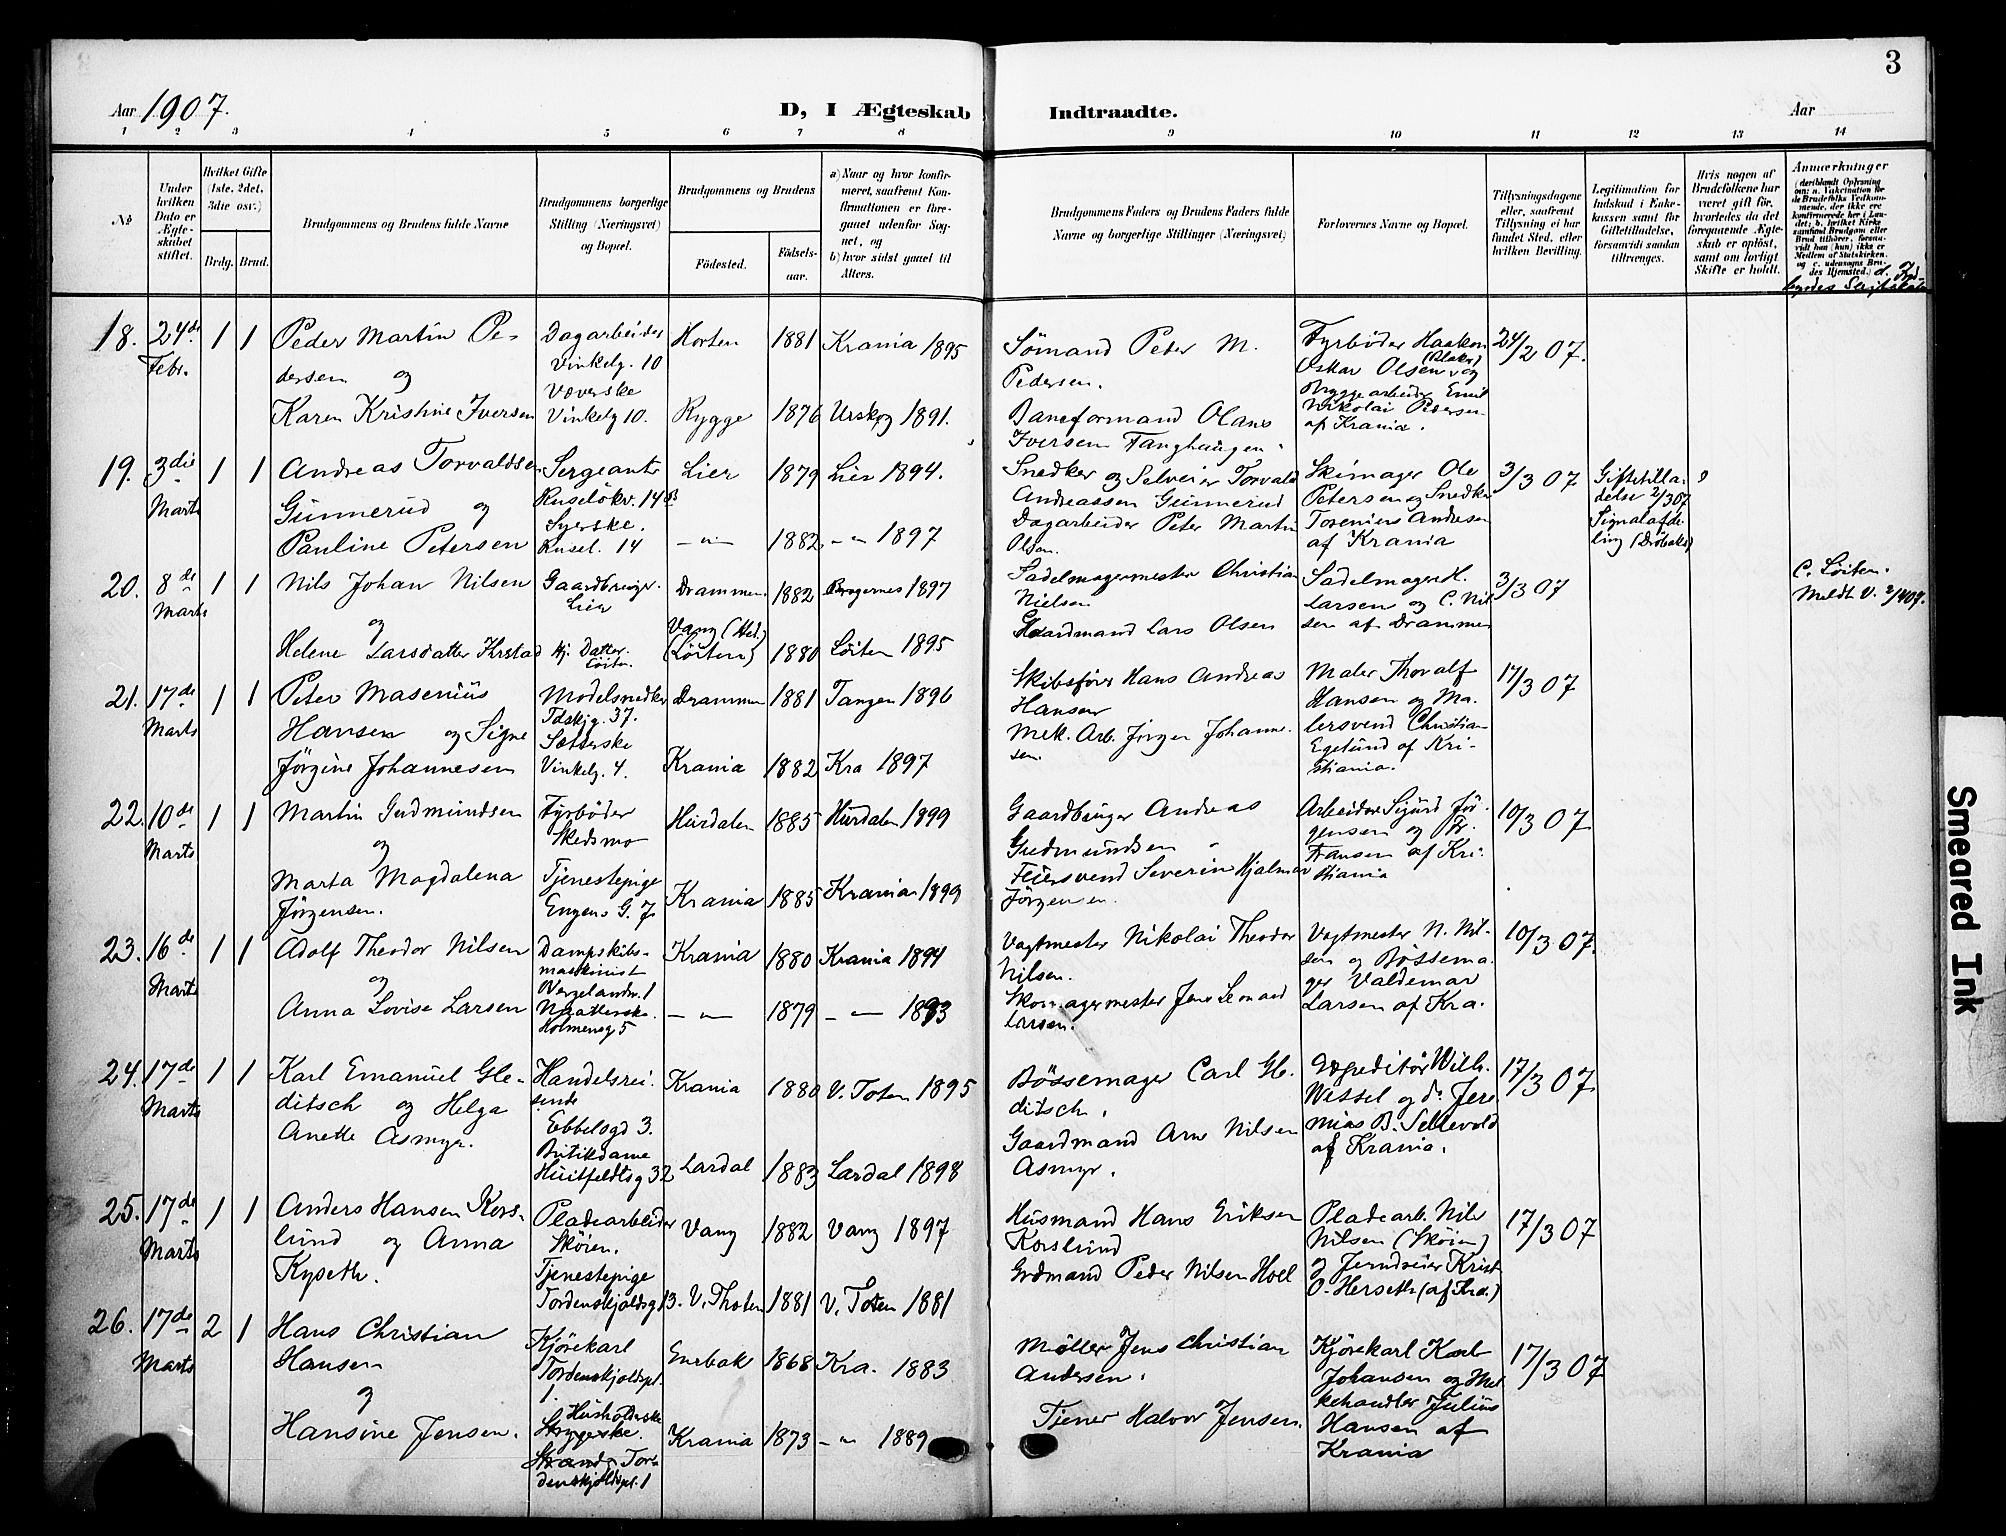 3
Aar 1907.
D, I Ægteskab Indtraadte.
Aar
1 2 3 4 5 6 7 8 9 10 11 12 13 14
№
Under hvilken Dato er Ægteskabet stiftet.
Hvilket Gifte (1ste, 2det, 3die osv.)
Brdg. Brud.
Brudgommens og Brudens fulde Navne
Brudgommens borgerlige Stilling (Næringsvei) og Bopæl.
Brudgommens og Brudens
Fødested.
Fødselsaar.
a) Naar og hvor konfirmeret, saafremt Konfirmationen er foregaaet udenfor Sognet, og
b) hvor sidst gaaet til Alters.
Brudgommens Faders og Brudens Faders fulde Navne og borgerlige Stillinger (Næringsvei)
Forlovernes Navne og Bopæl.
Tillysningsdagene eller, saafremt Tillysning ei har fundet Sted, efter hvilken Bevilling.
Legitimation for Indskud i Enkekassen samt for Giftetilladelse, forsaavidt saadan tiltrænges.
Hvis nogen af Brudefolkene har været gift før, hvorledes da det foregaaende Ægteskab er opløst, samt om lovligt Skifte er holdt.
Anmærkninger
(deriblandt Oplysning om: a. Vakcination for de Brudefolks Vedkommende, der ikke ere konfirmerede her i Landet; b. hvilket Kirkesamfund Brudgom eller Brud tilhører, forsaavidt han (hun) ikke er Medlem af Statskirken. og c. udensogns Brudes Hjemsted.)
18. 24de Febr. 1 1 Peder Martin Pedersen og
Dagarbeider Vinkelg. 10 Horten 1881 Krania 1895
Sömand Peder M. Pedersen.
Fyrbøder Haakon Oskar Olsen (Aker) og Bryggearbeider Emil Nikolai Pedersen af Krania.
24/2 07.
Karen Kristine Iversen Væverske Vinkelg 10. Rygge 1876 Urskog 1891.
Baneformand Olaus Iversen Tanghaugen
19. 3die Marts 1 1 Andreas Torvaldsen Gunnerud og
Sergeant Ruseløkv. 14 B Lier 1879 Lier 1894.
Snedker og Selveier Torvald Andreassen Gunnerud
Skimager Ole Petersen og Snedker Torenius Andresen af Krania
3/3 07
Giftetilladelse 2/3 07 Signalafdeling (Drøbak)
Pauline Petersen Syerske. Rusel. 14 —"— 1882 -"- 1897
Dagarbeider Peter Martin Olsen.
20. 8de Marts 1 1 Nils Johan Nilsen og
Gaardbruger Lier Drammen 1882 Bragernes 1897
Sadelmagermester Christian Nielsen
Sadelmager H. Larsen og C. Nilsen af Drammen
3/3 07
C. Löiten. Meldt V. 2/4 07.
Helene Larsdatter Krstad Hj. Datter. Löiten Vang (Hed.) (Löiten) 1880 Löiten 1895
Gaardmand Lars Olsen
21. 17de Marts 1 1 Peter Masenius Hansen og Signe Jörgine Johannesen
Modelsnedker Tdskjg. 37. Drammen 1881 Tangen 1896
Skibsfører Hans Andreas Hansen
Maler Thoralf Hansen og Malersvend Christian Egelund af Kristiania.
17/3 07
Sætterske Vinkelg. 4. Krania 1882 Kra 1897
Mek. Arb. Jörgen Johannesen.
22. 10de Marts 1 1 Martin Gudmundsen og
Fyrbøder Skedsmo Hurdalen 1885 Hurdalen 1899
Gaardbruger Andreas Gudmundsen
Arbeider Sigurd Jörgensen og Fr. Fransen af Kristiania
10/3 07
Marta Magdalena Jörgensen. Tjenestepige Engens G. 7 Krania 1885 Krania 1899
Feiersvend Severin Hjalmar Jörgensen.
23. 16de Marts 1 1 Adolf Theodor Nilsen og
Dampskibsmaskinist Wergelandsv. 1 Krania 1880 Krania 1894
Vagtmester Nikolai Theodor Nilsen.
Vagtmester N. Nilsen og Bössemager Valdemar Larsen af Kra.
10/3 07.
Anna Lovise Larsen Holmensg 5 —"— 1879 -"- 1893
Skomagermester Jens Leonard Larsen.
24. 17de Marts 1 1 Karl Emanuel Gleditsch og Helga Anette Asmyr.
Handelsreisende Ebbelsgd 3. Krania 1880 V. Toten 1895
Bössemager Carl Gleditsch.
Expeditör Wilh. Wessel og do Jeremias B. Sellevold af Krania.
17/3 07
Butikdame Huitfeldtsg 32 Lardal 1883 Lardal 1898
Gaardmand Arne Nilsen Asmyr.
25. 17de Marts 1 1 Anders Hansen Korslund og Anna Kyseth.
Pladearbeider Skøien. Vang 1882 Vang 1897
Husmand Hans Eriksen Korslund
Pladearb. Nils Nilsen (Skøien) og Jerndreier Krist O. Herseth (af Kra.)
17/3 07
Tjenestepige Tordenskjoldsg 13. V. Thoten 1881 V. Toten 1881
Grdmand Peder Nilsen Hoel
26. 17de Marts 2 1 Hans Christian Hansen og
Kjørekarl Tordenskjoldspl. 1. Enebak 1868 Kra. 1883
Möller Jens Christian Andersen.
Kjørekarl Karl Johansen og Melkehandler Julius Hansen af Krania
17/3 07
Hansine Jensen. Husholderske Strygerske. Strandg Tordenskjoldspl. 1 Krania 1873 -"- 1889
Tjener Halvor Jensen.
Smeared Ink